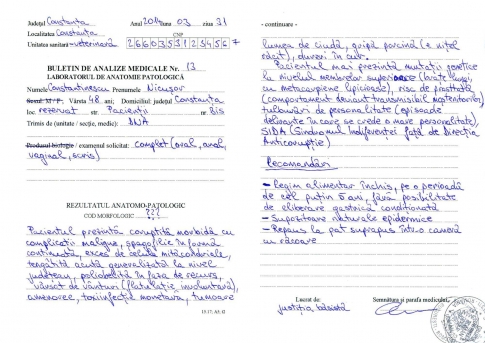 Județul Constanța Anul 2014 luna 03 ziua 31
Localitatea Constanța CNP
Unitatea sanitară - veterinară 2660353123456 7
BULETIN DE ANALIZE MEDICALE Nr. 13
LABORATORUL DE ANATOMIE PATOLOGICĂ
Numele Constantinescu Prenumele Nicușor
Sexul M / F, Vârsta 48 ani, Domiciliul: județul Constanța
loc. rezervat str. Pacienții nr. Bis
Trimis de (unitate / secție, medic): DNA
Produsul biologic / examenul solicitat: complet (oral, anal,
vaginal, scris)
REZULTATUL ANATOMO-PATOLOGIC
COD MORFOLOGIC ???
Pacientul prezintă coruptită morbidă cu
complicații maligne, șpagofilie în formă
continuată, exces de celule mităcondriale,
țengătită acută generalizată la nivel
județean, poliobelită în faza de recurs,
vărsat de vânturi (flatulație, involuntară),
amenoree, toxiinfecția monetară, tumoare
15.17; A5; t2
- continuare -
lungea de ciudă, gripă porcină (e nițel
răcit), dureri în cur.
Pacientul mai prezintă mutații genetice
la nivelul membrelor superioare (brațe lungi,
cu metacarpiene lipicioase), risc de prostată
(comportament deviant transmisibil moștenitorilor),
tulburări de personalitate (episoade
delirante în care se crede o mare personalitate),
SIDA (Sindromul Indiferenței față de Direcția
Anticorupție)
Recomandări
- Regim alimentar închis, pe o perioadă
de cel puțin 5 ani, fără posibilitate
de eliberare gastrică condiționată
- Supozitoare naturale epidermice
- Repaus la pat suprapus într-o cameră
cu răcoare
Lucrat de:
justiția băsistă
Semnătura și parafa medicului,